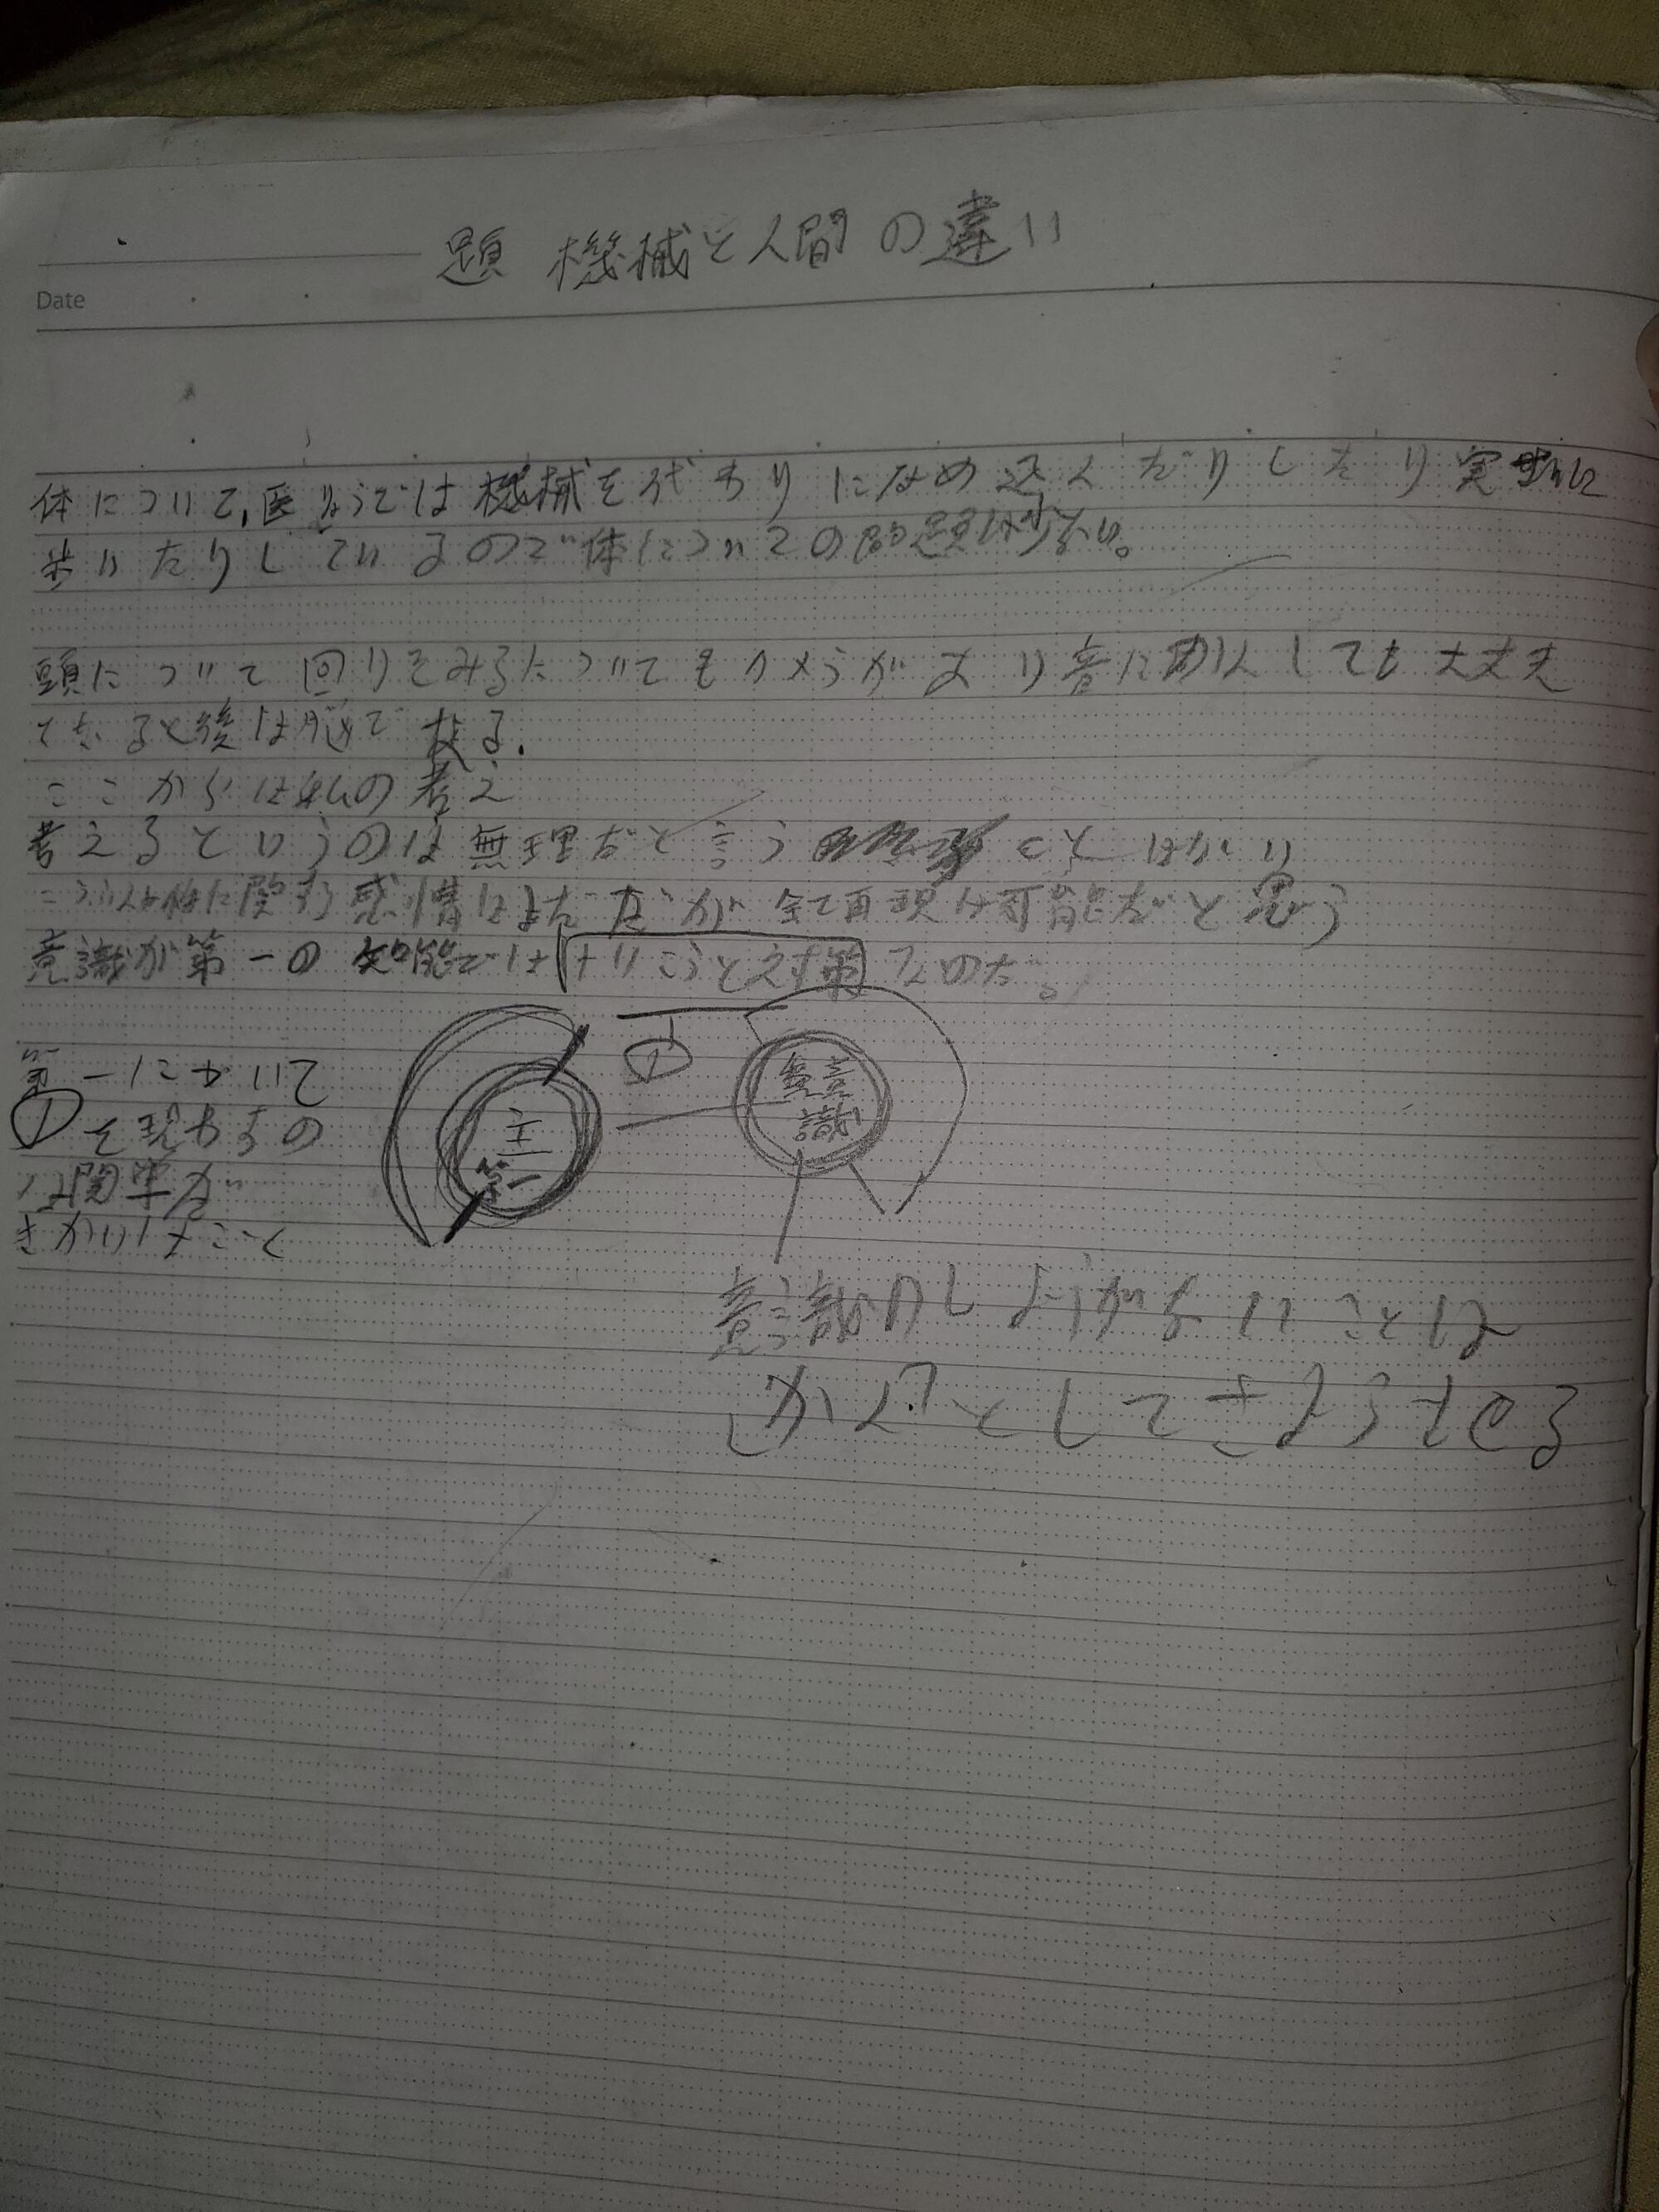 題 機械と人間の違い
Date
体について、医りょうでは機械を代わりにはめ込んだりしたり実際に
歩いたりしているので体についての問題は少ない。
頭について回りをみるについてもカメラがあり音に関しても大丈夫
となると後は脳で有る.
ここからは私の考え
考えるというのは無理だと言う ことはない
に関する感情はまだだが全て再現は可能だと思う
意識が第一の知能では
主
第一
①
無意
識
第一において
①を現わすの
は簡単だ
意識のしようがないことは
としてさようせる